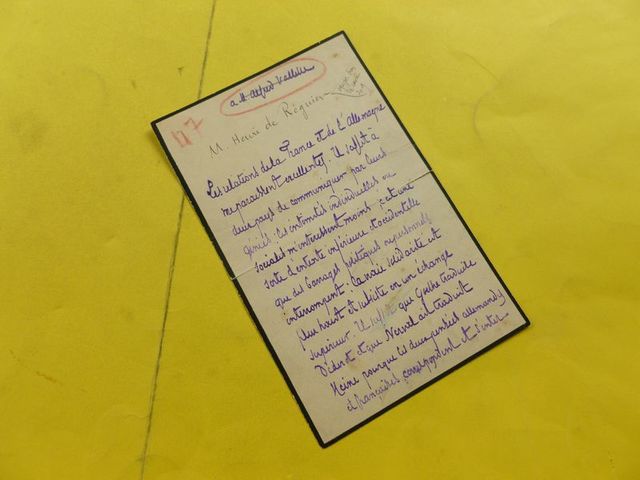 à M. Alfred Vallette
117
M. Henri de Régnier
Les relations de la France et de l'Allemagne
me paraissent excellentes. Il suffit à
deux pays de communiquer par leurs
génies. Les intimités individuelles ou
sociales m'intéressent moins : c'est une
sorte d'entente inférieure et accidentelle
que des tapages politiques
interrompent. La vraie solidarité est
plus haut et subsiste en un échange
supérieur. Il suffit que Goethe traduise
Diderot et que Nerval ait traduit
Heine pour que les deux pensées allemandes
et françaises correspondent et s'inter